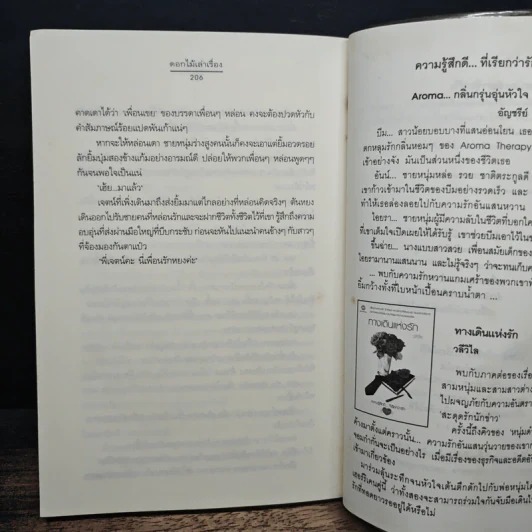 ดอกไม้เล่าเรื่อง
206
คาดเดาได้ว่า 'เพื่อนเขย' ของบรรดาเพื่อนๆ หล่อน คงจะต้องปวดหัวกับ
คำสัมภาษณ์ร้อยแปดพันเก้าแน่ๆ
หากจะให้หล่อนเดา ชายหนุ่มร่างสูงคนนั้นก็คงจะเอาแต่ยิ้มอวดรอย
ลักยิ้มบุ๋มสองข้างแก้มอย่างอารมณ์ดี ปล่อยให้พวกเพื่อนๆ หล่อนพูดๆๆ
กันจนพอใจเป็นแน่
'เฮ้ย...มาแล้ว'
เจตน์ที่เพิ่งเดินมาถึงส่งยิ้มมาแต่ไกลอย่างที่หล่อนคิดจริงๆ ต้นหยง
เดินออกไปรับชายคนที่หล่อนรักและจะฝากชีวิตทั้งชีวิตไว้ที่เขา รู้สึกถึงความ
อบอุ่นที่ส่งผ่านมือใหญ่ที่บีบกระชับ ก่อนจะหันไปแนะนำคนข้างๆ กับสาวๆ
ที่จ้องมองกันตาแป๋ว
'พี่เจตน์คะ นี่เพื่อนรักหยงค่ะ'
ความรู้สึกดี... ที่เรียกว่ารั
Aroma... กลิ่นกรุ่นอุ่นหัวใจ
อัญชรีย์
บีม... สาวน้อยบอบบางที่แสนอ่อนโยน เธอ
ตกหลุมรักกลิ่นหอมๆ ของ Aroma Therapy
เข้าอย่างจัง มันเป็นส่วนหนึ่งของชีวิตเธอ
อันน์... ชายหนุ่มหล่อ รวย ชาติตระกูลดี
เขาก้าวเข้ามาในชีวิตของบีมอย่างรวดเร็ว และ
ทำให้เธอล่องลอยไปกับความรักอันแสนหวาน
โอยรา... ชายหนุ่มผู้มีความลับในชีวิตที่บอกใค
ที่เขาเต็มใจเปิดเผยให้ได้รับรู้ เขาช่วยบีมเอาไว้ใน
ขึ้นฉ่าย... นางแบบสาวสวย เพื่อนสมัยเด็กของ
โอยรามานานแสนนาน และไม่รู้จริงๆ ว่าจะทนเก็บค
... พบกับความรักหวานแกมเศร้าของพวกเขาที่
ยิ้มกว้างทั้งที่ใบหน้าเปื้อนคราบน้ำตา ...
ทางเดินแห่งรัก
ทางเดินแห่งรัก
วลีวิไล
พบกับภาคต่อของเรื่อ
สามหนุ่มและสามสาวต่าง
ไปผจญภัยกับความอันตรา
'สะดุดรักนักข่าว'
ครั้งนี้ถึงคิวของ หนุ่ม
ค้างมาตั้งแต่คราวนั้น... ความรักอันแสนวุ่นวายของเขา
จอมกำกั่นจะเป็นอย่างไร เมื่อมีเรื่องของธุรกิจและอดีตอั
เข้ามาเกี่ยวข้อง
มาร่วมลุ้นระทึกจนหัวใจเต้นตึกตักไปกับพ่อหนุ่ม
เธอรีเดนคู่นี้ ว่าทั้งสองจะสามารถร่วมใจกันจับมือเดิน
รักที่ทอดยาวรออยู่ได้หรือไม่